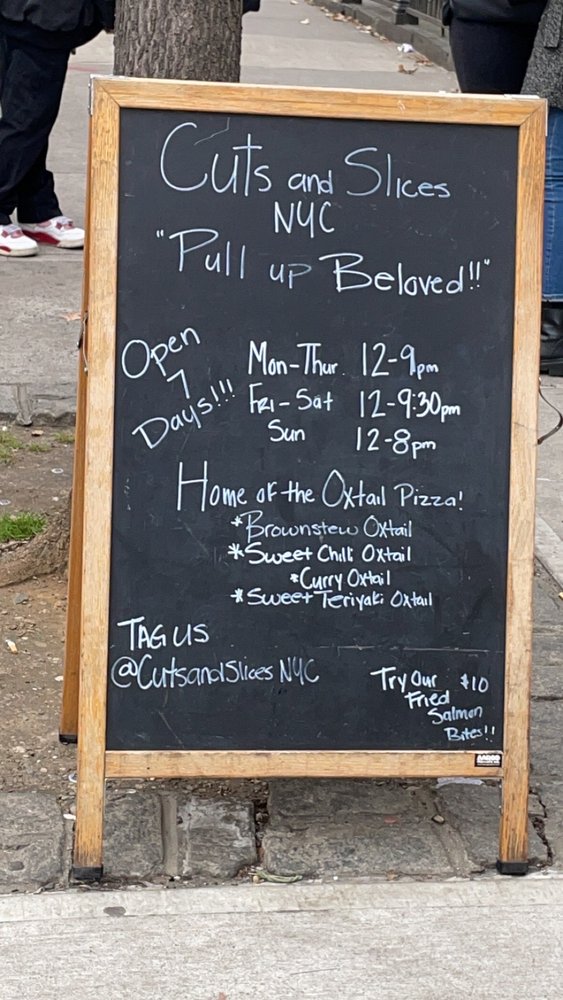 Cuts and Slices
NYC
"Pull up Beloved!!"
Open
7
Days!!!
Mon-Thur. 12-9pm
Fri-Sat 12-9:30pm
Sun 12-8pm
Home of the Oxtail Pizza!
*Brownstew Oxtail
*Sweet Chili Oxtail
*Curry Oxtail
*Sweet Teriyaki Oxtail
TAG US
@CutsandSlices NYC
Try Our $10
Fried
Salmon
Bites!!